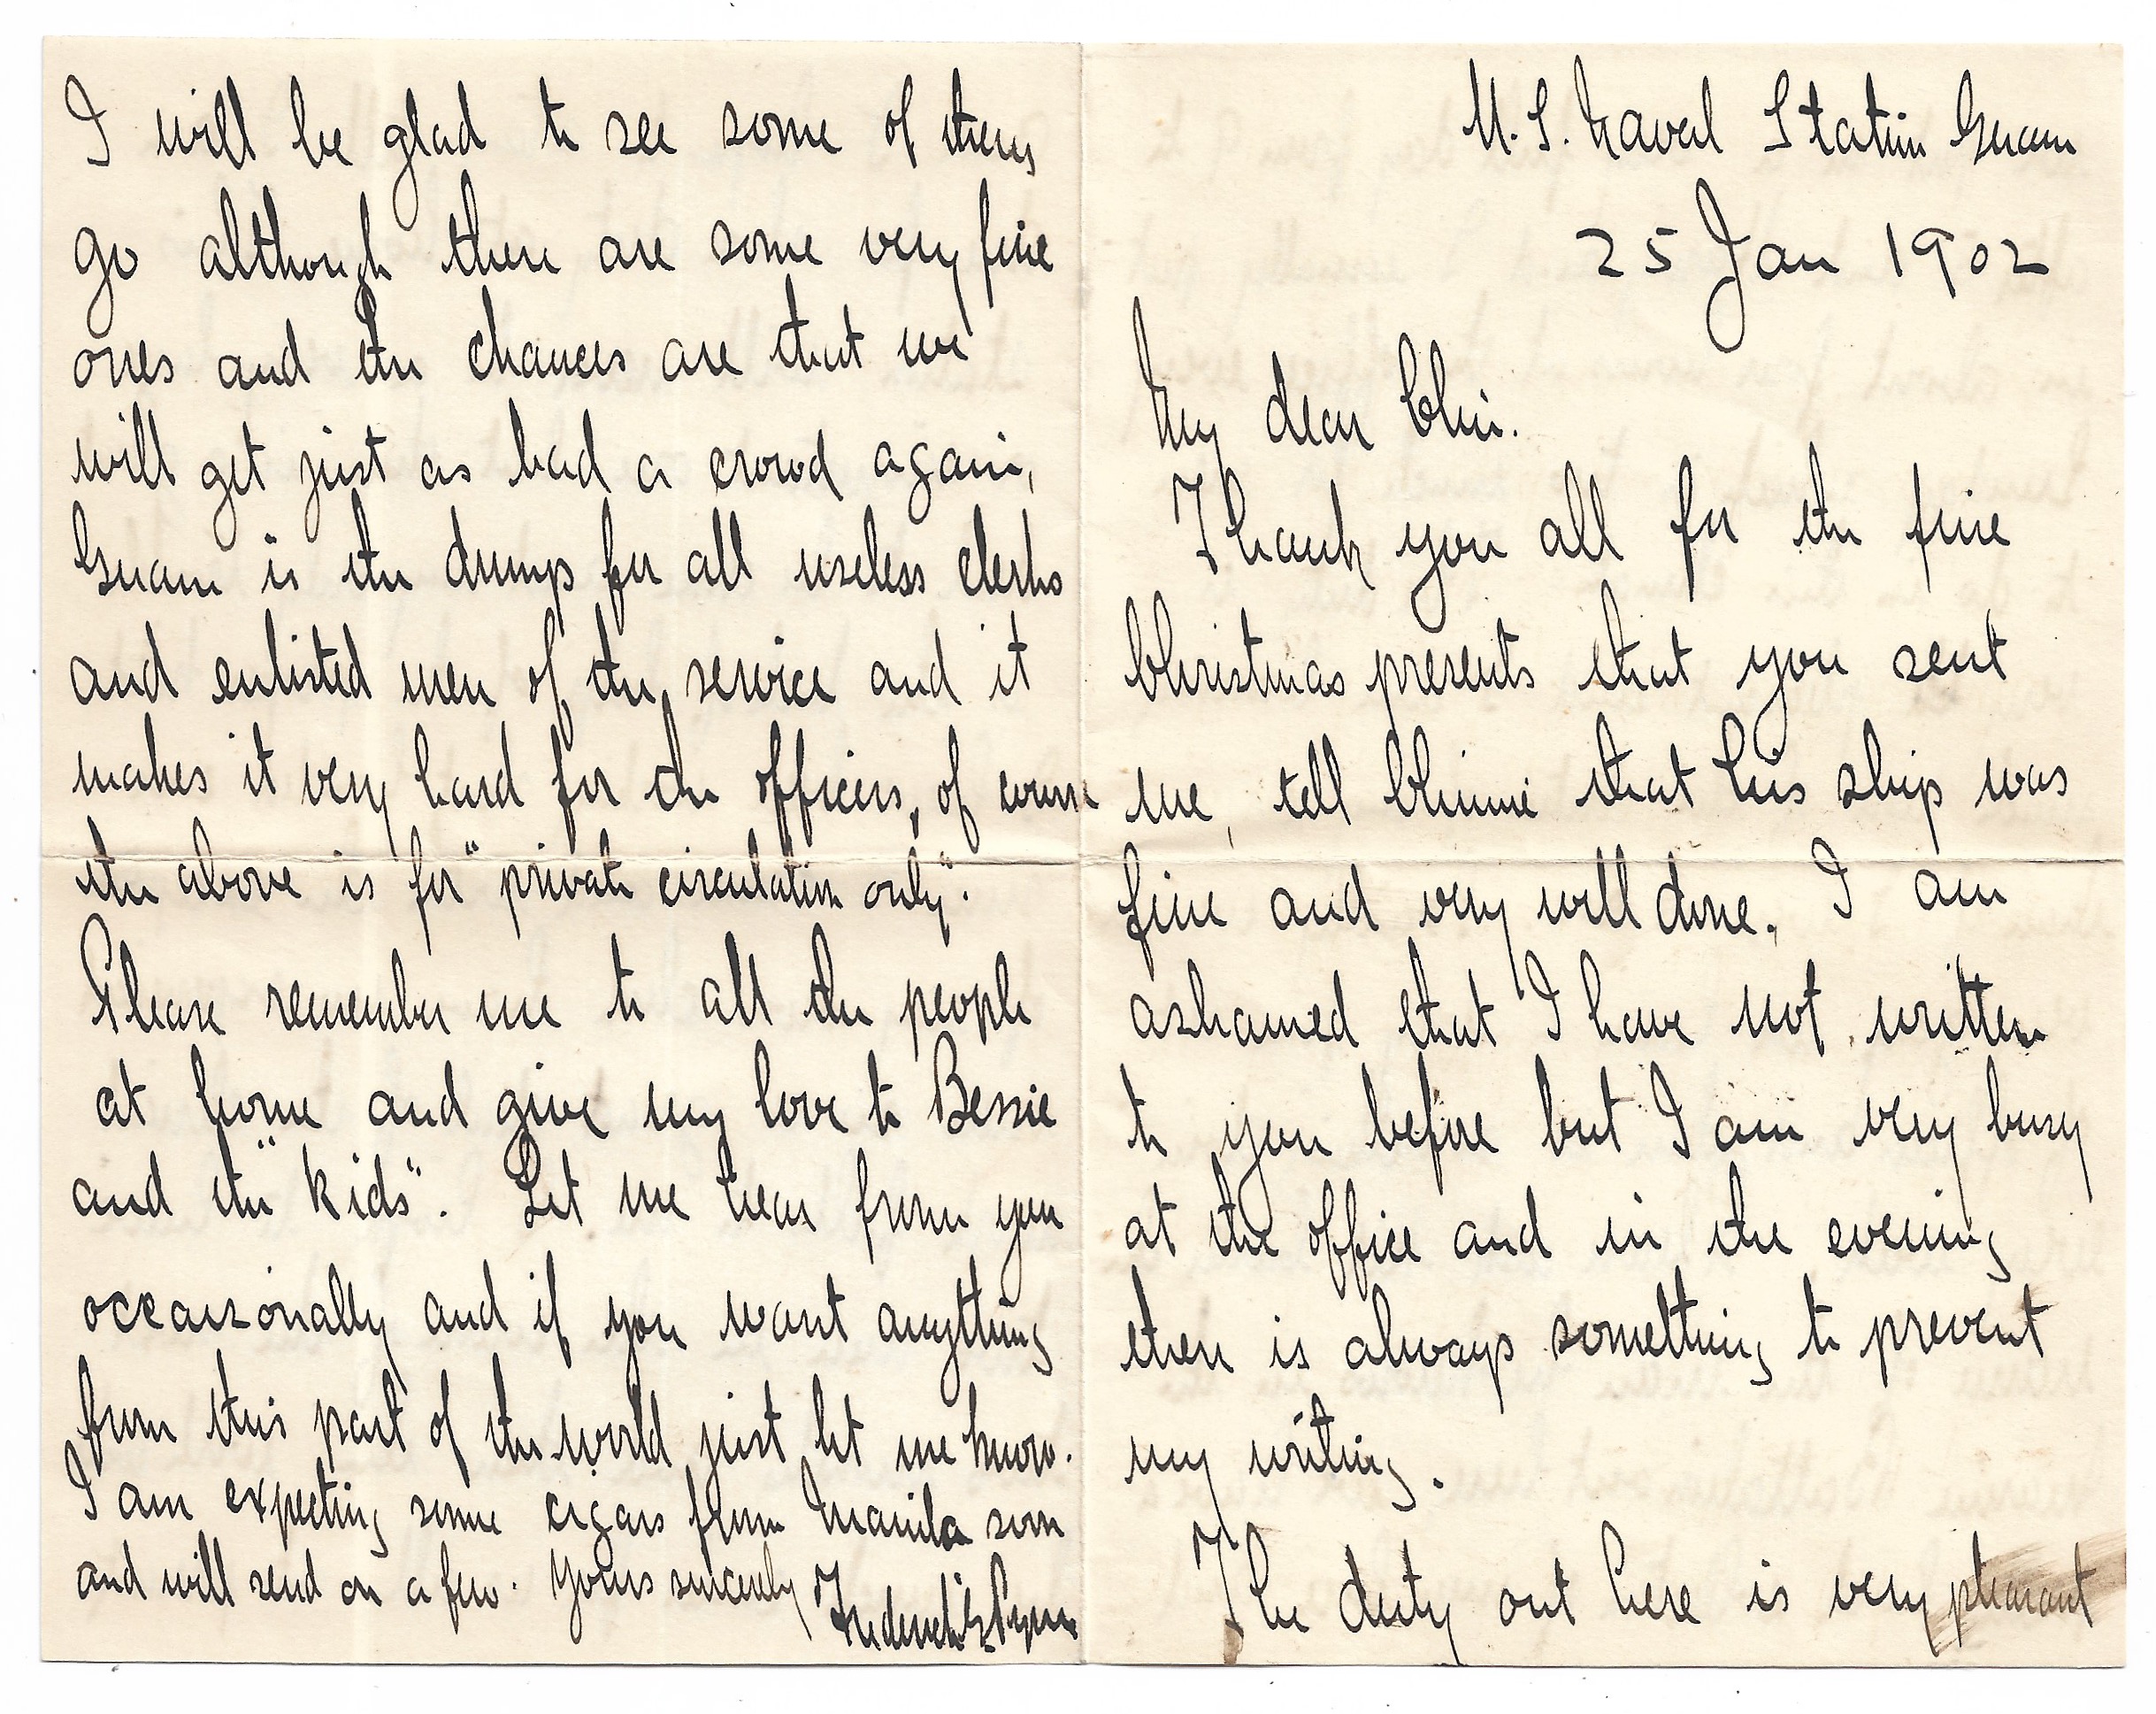 U. S. Naval Station Guam
25 Jan 1902
My dear Chin.
Thank you all for the fine
Christmas presents that you sent
me, tell Chinnie that his ship was
fine and very well done. I am
ashamed that I have not written
to you before but I am very busy
at the office and in the evening
there is always something to prevent
my writing.
The duty out here is very pleasant
I will be glad to see some of them
go although there are some very fine
ones and the chances are that we
will get just as bad a crowd again,
Guam is the dump for all useless clerks
and enlisted men of the service and it
makes it very hard for the officers, of course
the above is for "private circulation only".
Please remember me to all the people
at home and give my love to Bessie
and the "kids". Let me hear from you
occaisonally and if you want anything
from this part of the world just let me know.
I am expecting some cigars from Manila soon
and will send on a few. Yours sincerely
Frederick G Pyne